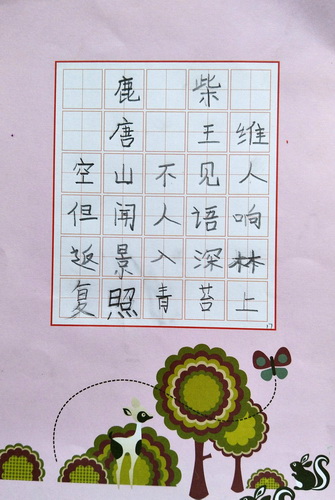 鹿柴
唐王维
空山不见人
但闻人语响
返景入深林
复照青苔上
17